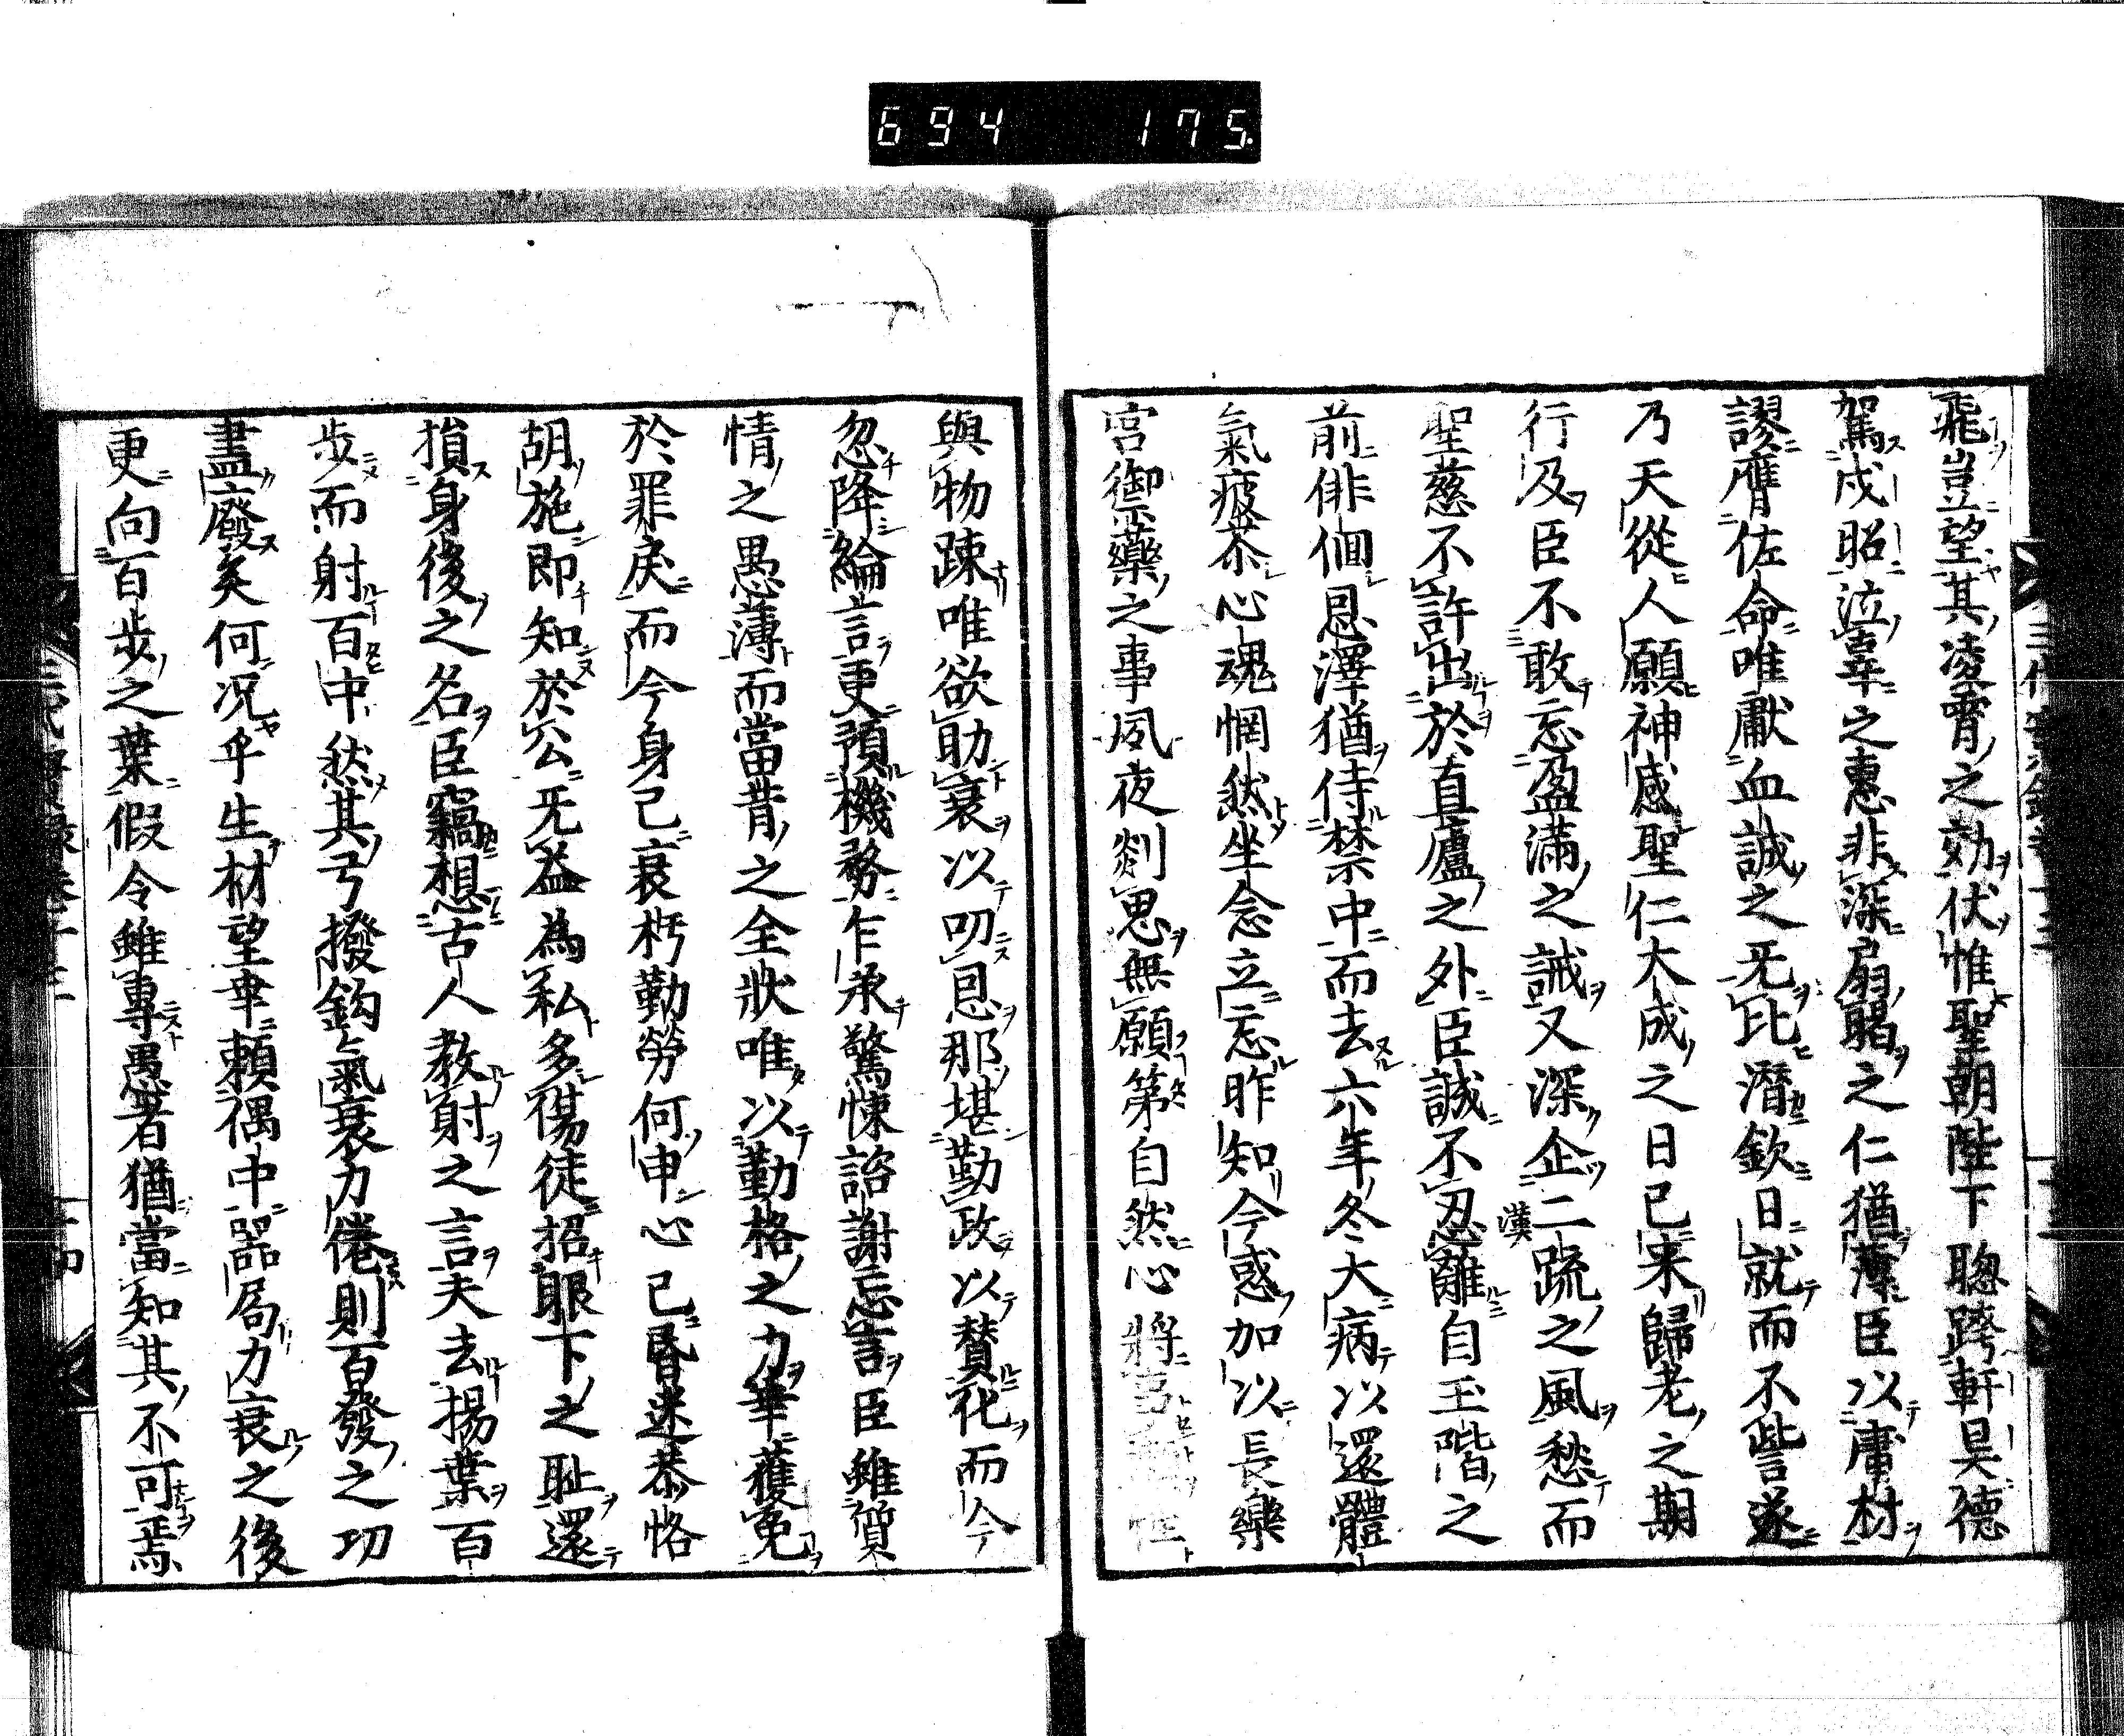 694 175.
飛豈望其凌霄之効伏惟聖朝陛下聰跨軒昊德
駕成昭泣辜之惠非深扇暍之仁猶薄臣以庸材
謬膺佐命唯獻血誠之无比潜欽日就而不訾遂
乃天從人願神感聖仁大成之日已来歸老之期
行及臣不敢忘盈滿之誡又深企二疏之風愁而
漢
聖慈不許出於直廬之外臣誠不忍離自玉階之
前俳佪恩澤猶侍禁中而去六年冬大病以還體
氣疲苶心魂惘然坐念立忘昨知今惑加以長樂
宮御藥之事夙夜剡思無願第自然心將
與物疎唯欲助衰以叨恩那堪勤政以賛化而今
忽降綸言更預機務乍承驚悚諮謝忘言臣雖質
情之愚薄而當昔之全狀唯以勤格之力幸獲免
於罪戻而今身已衰朽勤勞何申心已昏迷恭恪
胡施即知於公无益為私多傷徒招耶下之耻還
損身後之名臣竊想古人教射之言夫去揚葉百
步而射百中然其弓撥鈎氣衰力倦則百發之功
盡廢矣何况乎生材望幸頼偶中器局力衰之後
更向百步之葉假令雖專愚者猶當知其不可焉